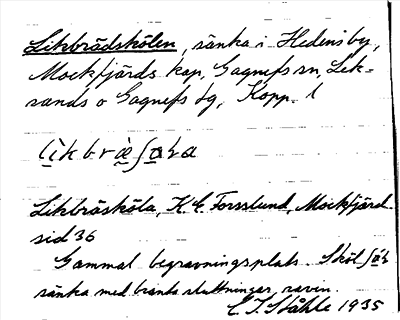 Likbrädskölen, sänka i Hedens by,
Mockfjärds kap, Gagnefs sn, Lek=
sands o Gagnefs tg, Kopp. l
Likbräsköla, K. E. Forsslund, Mockfjärd
sid 36
Gammal begravningsplats. Sköl
sänka med branta sluttningar, ravin.
C. I. Ståhle 1935